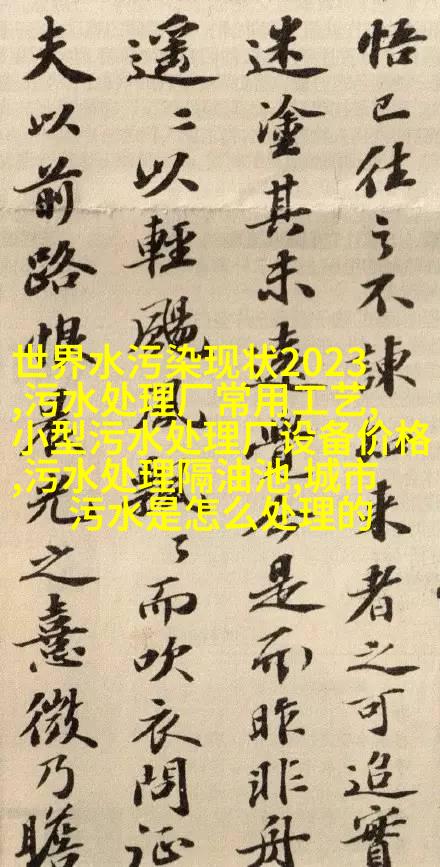 悟已往之不諫知来者之可追實
迷塗其未遠覺今是而昨非舟
遥〻以輕颺風飄〻而吹衣問征
夫以前路恨晨光之熹微乃瞻
世界水污染现状2023
,污水处理厂常用工艺,
小型污水处理厂设备价格
,污水处理隔油池,城市
污水是怎么处理的